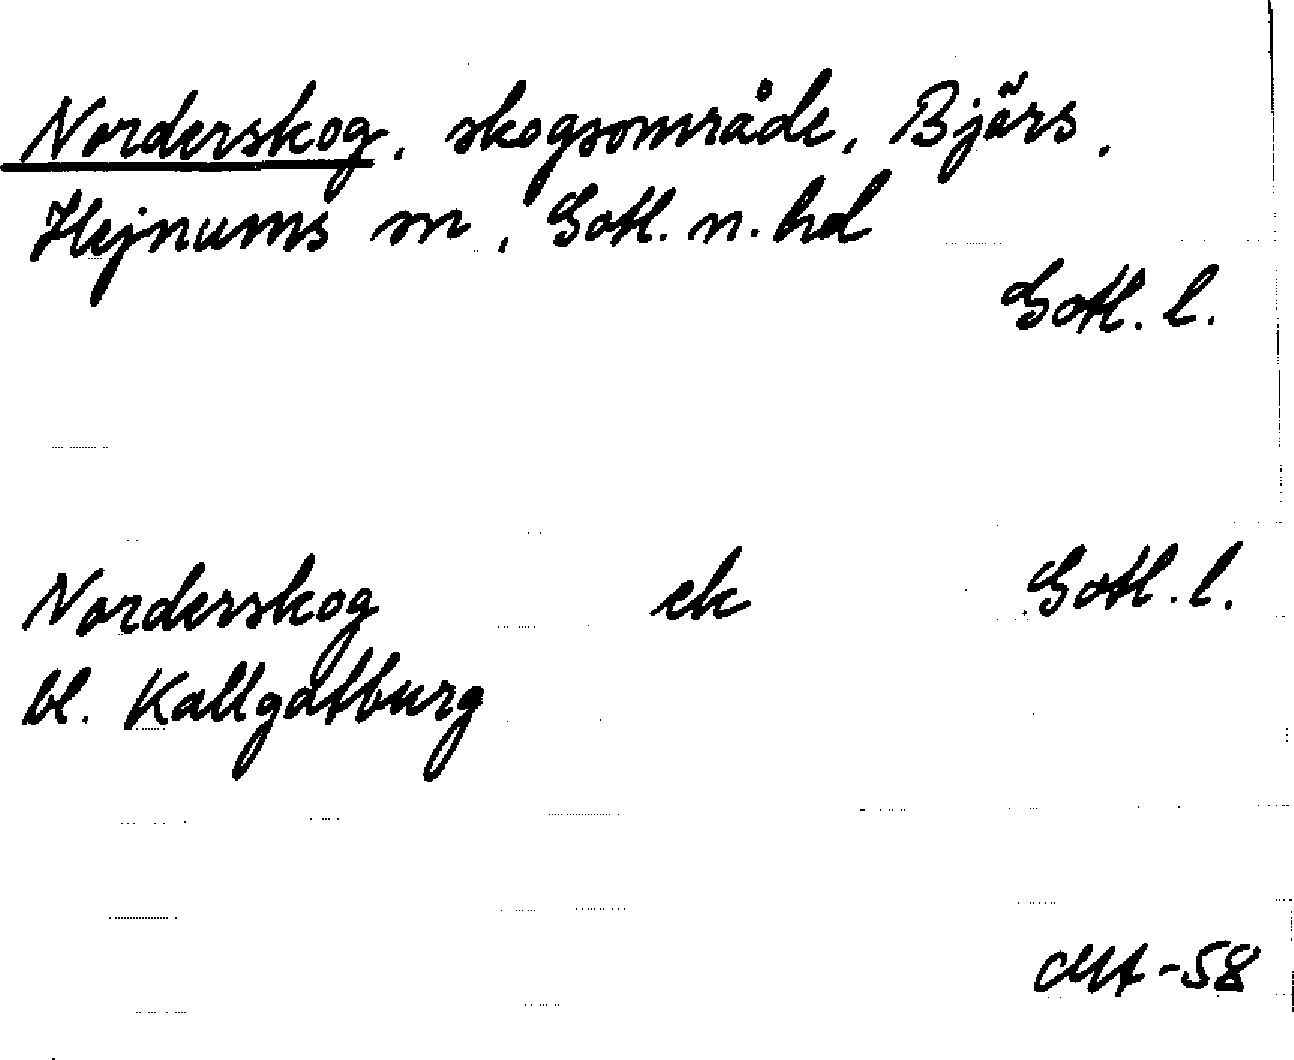 Norderskog, skogsområde, Bjärs,
Hejnums sn, Gotl. n. hd
Gotl. l.
Norderskog ek Gotl. l.
bl. Kallgatburg
-58